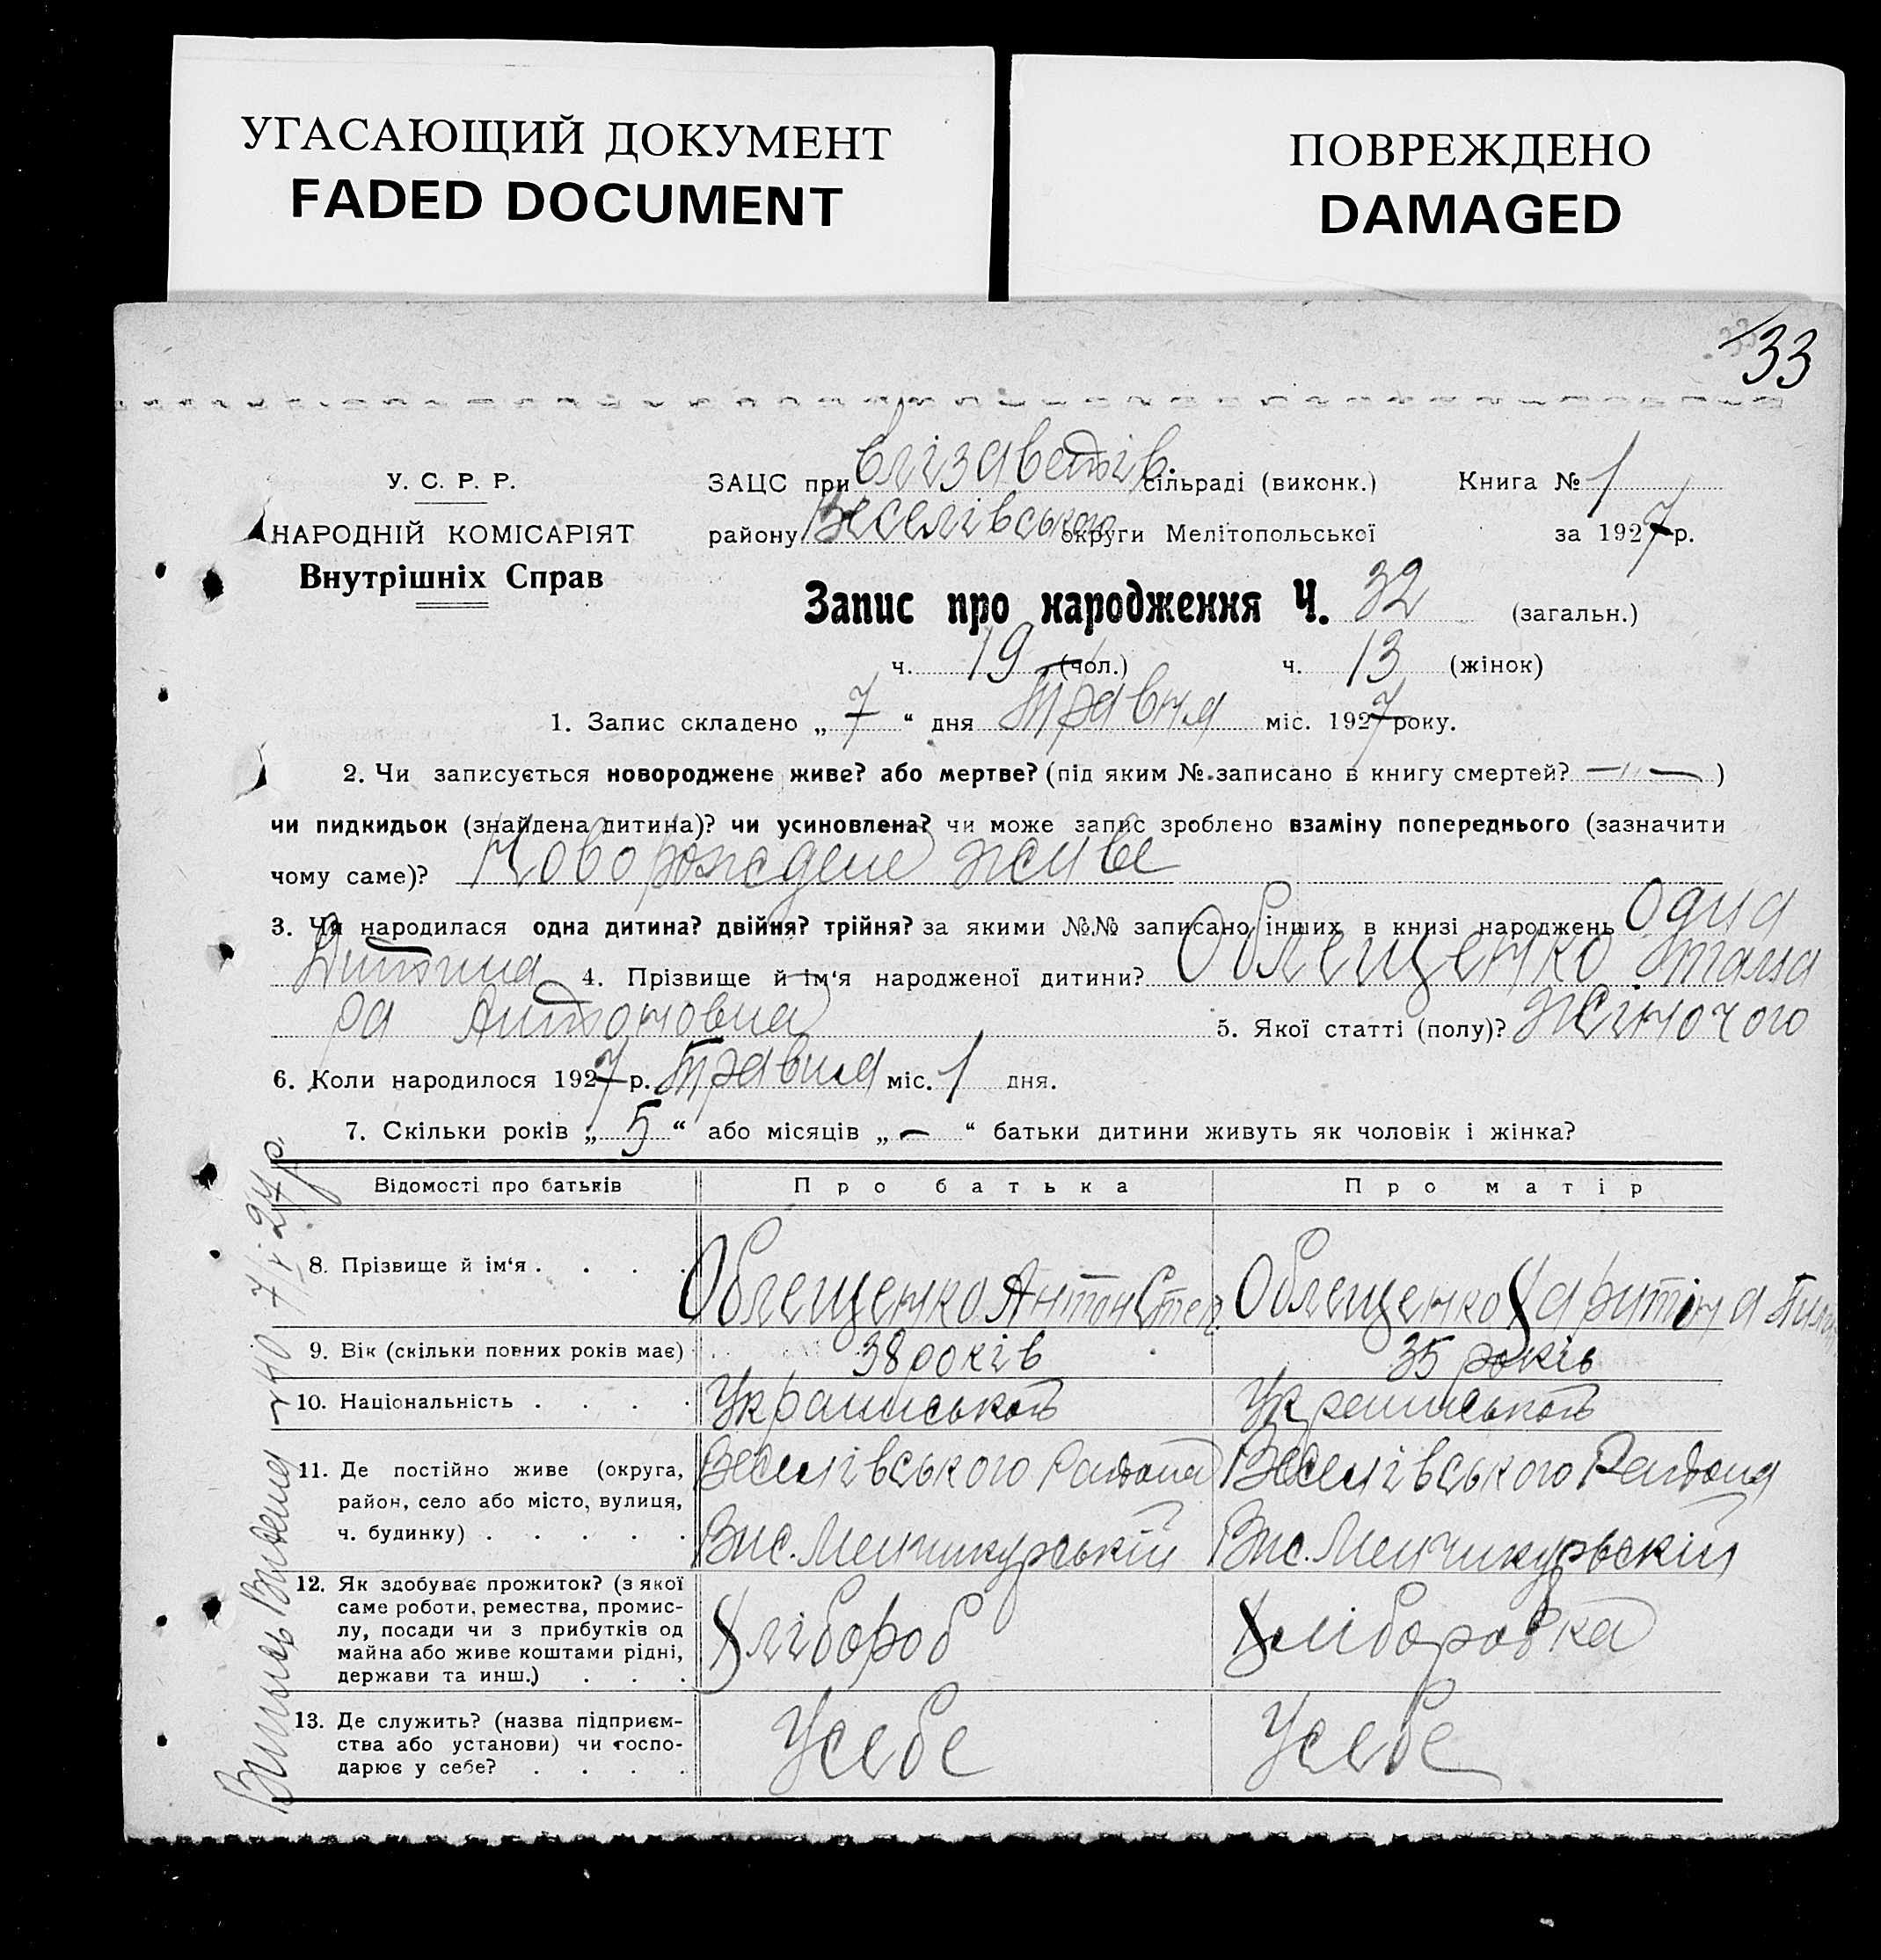 УГАСАЮЩИЙ ДОКУМЕНТ
FADED DOCUMENT
ПОВРЕЖДЕНО
DAMAGED
33
У. С. Р. Р.
НАРОДНІЙ КОМІСАРІЯТ
Внутрішніх Справ
ЗАЦС при Єлізаветів. сільраді (виконк.) Книга № 1
району Веселівського округи Мелітопольської за 1927 р.
Запис про народження Ч. 32 (загальн.)
ч. 19 (чол.) ч. 13 (жінок)
1. Запис складено „ 7 “ дня Травня міс. 1927 року.
2. Чи записується новороджене живе? або мертве? (під яким № записано в книгу смертей? — „ — )
чи пидкидьок (знайдена дитина)? чи усиновлена? чи може запис зроблено взаміну попереднього (зазначити
чому саме)? Новорождене живе
3. Чи народилася одна дитина? двійня? трійня? за якими №№ записано інших в книзі народжень Одна
Дитина 4. Прізвище й ім‘я народженої дитини? Облещенко Тама
ра Антоновна 5. Якої статті (полу)? Жіночого
6. Коли народилося 1927 р. Травня міс. 1 дня.
7. Скільки років „ 5 “ або місяців „ — “ батьки дитини живуть як чоловік і жінка?
Відомості про батьків Про батька Про матір
8. Прізвище й ім‘я . . . . Облещенко Антон Степ. Облещенко Харитіна
9. Вік (скільки повних років має) 38 років 35 років
10. Національність . . . . Украинськоъ Украинськоъ
11. Де постійно живе (округа, Веселівського Района Веселівського Района
район, село або місто, вулиця,
ч. будинку) . . . . . Вис. Менчикурський Вис. Менчикурьский
12. Як здобуває прожиток? (з якої
саме роботи, ремества, промис-
лу, посади чи з прибутків од Хлібороб Хліборобка
майна або живе коштами рідні,
держави та инш.) . . .
13. Де служить? (назва підприєм-
ства або установи) чи госпо- Усебе Усебе
дарює у себе? . . . .
Випись Видена 7/V 27 р.